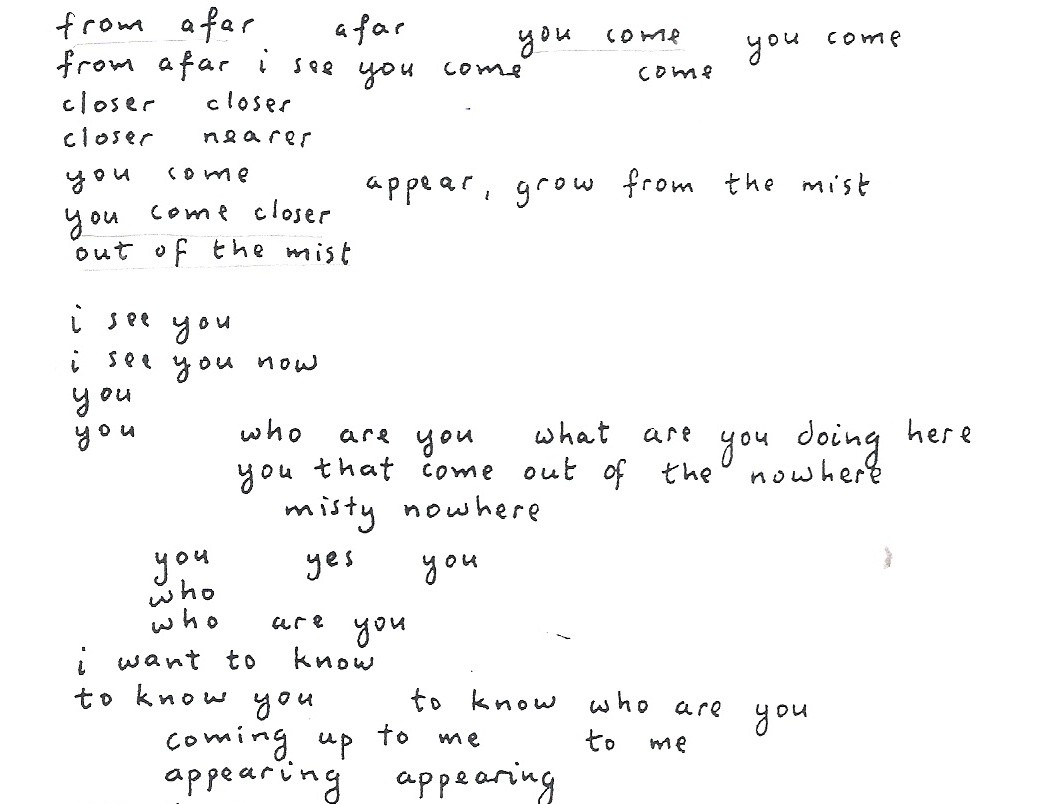 from afar afar you come you come
from afar i see you come come
closer closer
closer nearer
you come appear, grow from the mist
you come closer
out of the mist
i see you
i see you now
you
you who are you what are you doing here
you that come out of the nowhere
misty nowhere
you yes you
who
who are you
i want to know
to know you to know who are you
coming up to me to me
appearing appearing